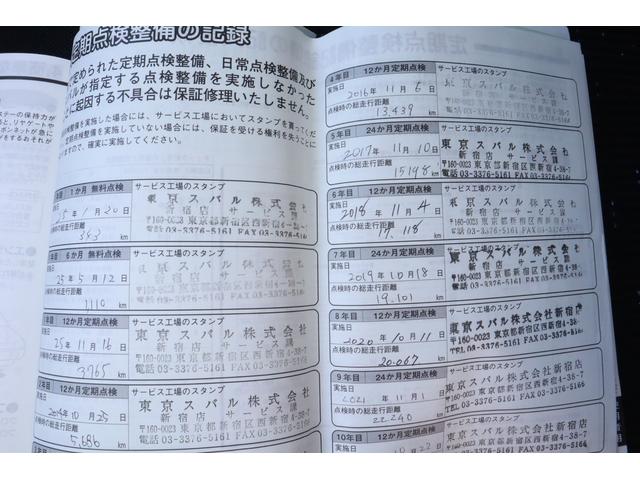 定期点検整備の記録
定められた定期点検整備、日常点検整備及び
バルが指定する点検整備を実施しなかった
とに起因する不具合は保証修理いたしません。
検整備を実施した場合には、サービス工場においてスタンプを貰ってくだ
定期点検整備を実施していない場合には、保証を受ける権利を失うこと
ますので、確実に実施してください。
1か月 無料点検 サービス工場のスタンプ
25年1月20日
東京スバル株式会社
新宿店 サービス課
〒160-0023 東京都新宿区西新宿4-38-7
電話03-3376-5161 FAX03-3376-
時の総走行距離
343 km
6か月 無料点検 サービス工場のスタンプ
25年5月12日
東京スバル株式会社
新宿店 サービス課
〒160-0023 東京都新宿区西新宿4-38-7
電話03-3376-5161 FAX03-3376-
時の総走行距離
1110 km
12か月定期点検 サービス工場のスタンプ
25年11月16日
東京スバル株式会社
新宿店 サービス課
〒160-0023 東京都新宿区西新宿4-38-7
電話03-3376-5161 FAX03-3376-516
点検時の総走行距離
3965 km
2年目 12か月定期点検 サービス工場のスタンプ
実施日
2014年10月25日
東京スバル株式会社
新宿店 サービス課
〒160-0023 東京都新宿区西新宿4-38-7
電話03-3376-5161 FAX03-3376-5164
点検時の総走行距離
5,686 km
4年目 12か月定期点検 サービス工場のスタンプ
実施日
2016年11月6日
東京スバル株式会社
点検時の総走行距離
13,439 km
5年目 24か月定期点検 サービス工場のスタンプ
実施日
2017年11月10日
東京スバル株式会社
新宿店 サービス課
〒160-0023 東京都新宿区西新宿4-38-7
電話03-3376-5161 FAX03-3376-
点検時の総走行距離
15198 km
6年目 12か月定期点検 サービス工場のスタンプ
実施日
2018年11月4日
東京スバル株式会社
新宿店 サービス課
〒160-0023 東京都新宿区西新宿4-38-7
電話03-3376-5161 FAX03-3376-516
点検時の総走行距離
17,118 km
7年目 24か月定期点検 サービス工場のスタンプ
実施日
2019年10月18日
東京スバル株式会社
新宿店 サービス課
〒160-0023 東京都新宿区西新宿4-38-7
電話03-3376-5161 FAX03-3376-516
点検時の総走行距離
19,101 km
8年目 12か月定期点検 サービス工場のスタンプ
実施日
2020年10月11日
東京スバル株式会社新宿店
〒160-0023 東京都新宿区西新宿4-38-7
電話 03-3376-5161 FAX03-3376-51
点検時の総走行距離
20,067 km
9年目 24か月定期点検 サービス工場のスタンプ
実施日
2021年11月 日
東京スバル株式会社新宿店
〒160-0023 東京都新宿区西新宿4-38-7
TEL 03-3376-5161 FAX03-3376-516
点検時の総走行距離
22,240 km
10年目 12か月定期点検 サービス工場のスタンプ
実施日
10月22日
東京スバル株式会社新宿店
〒160-0023 東京都新宿区西新宿4-38-7